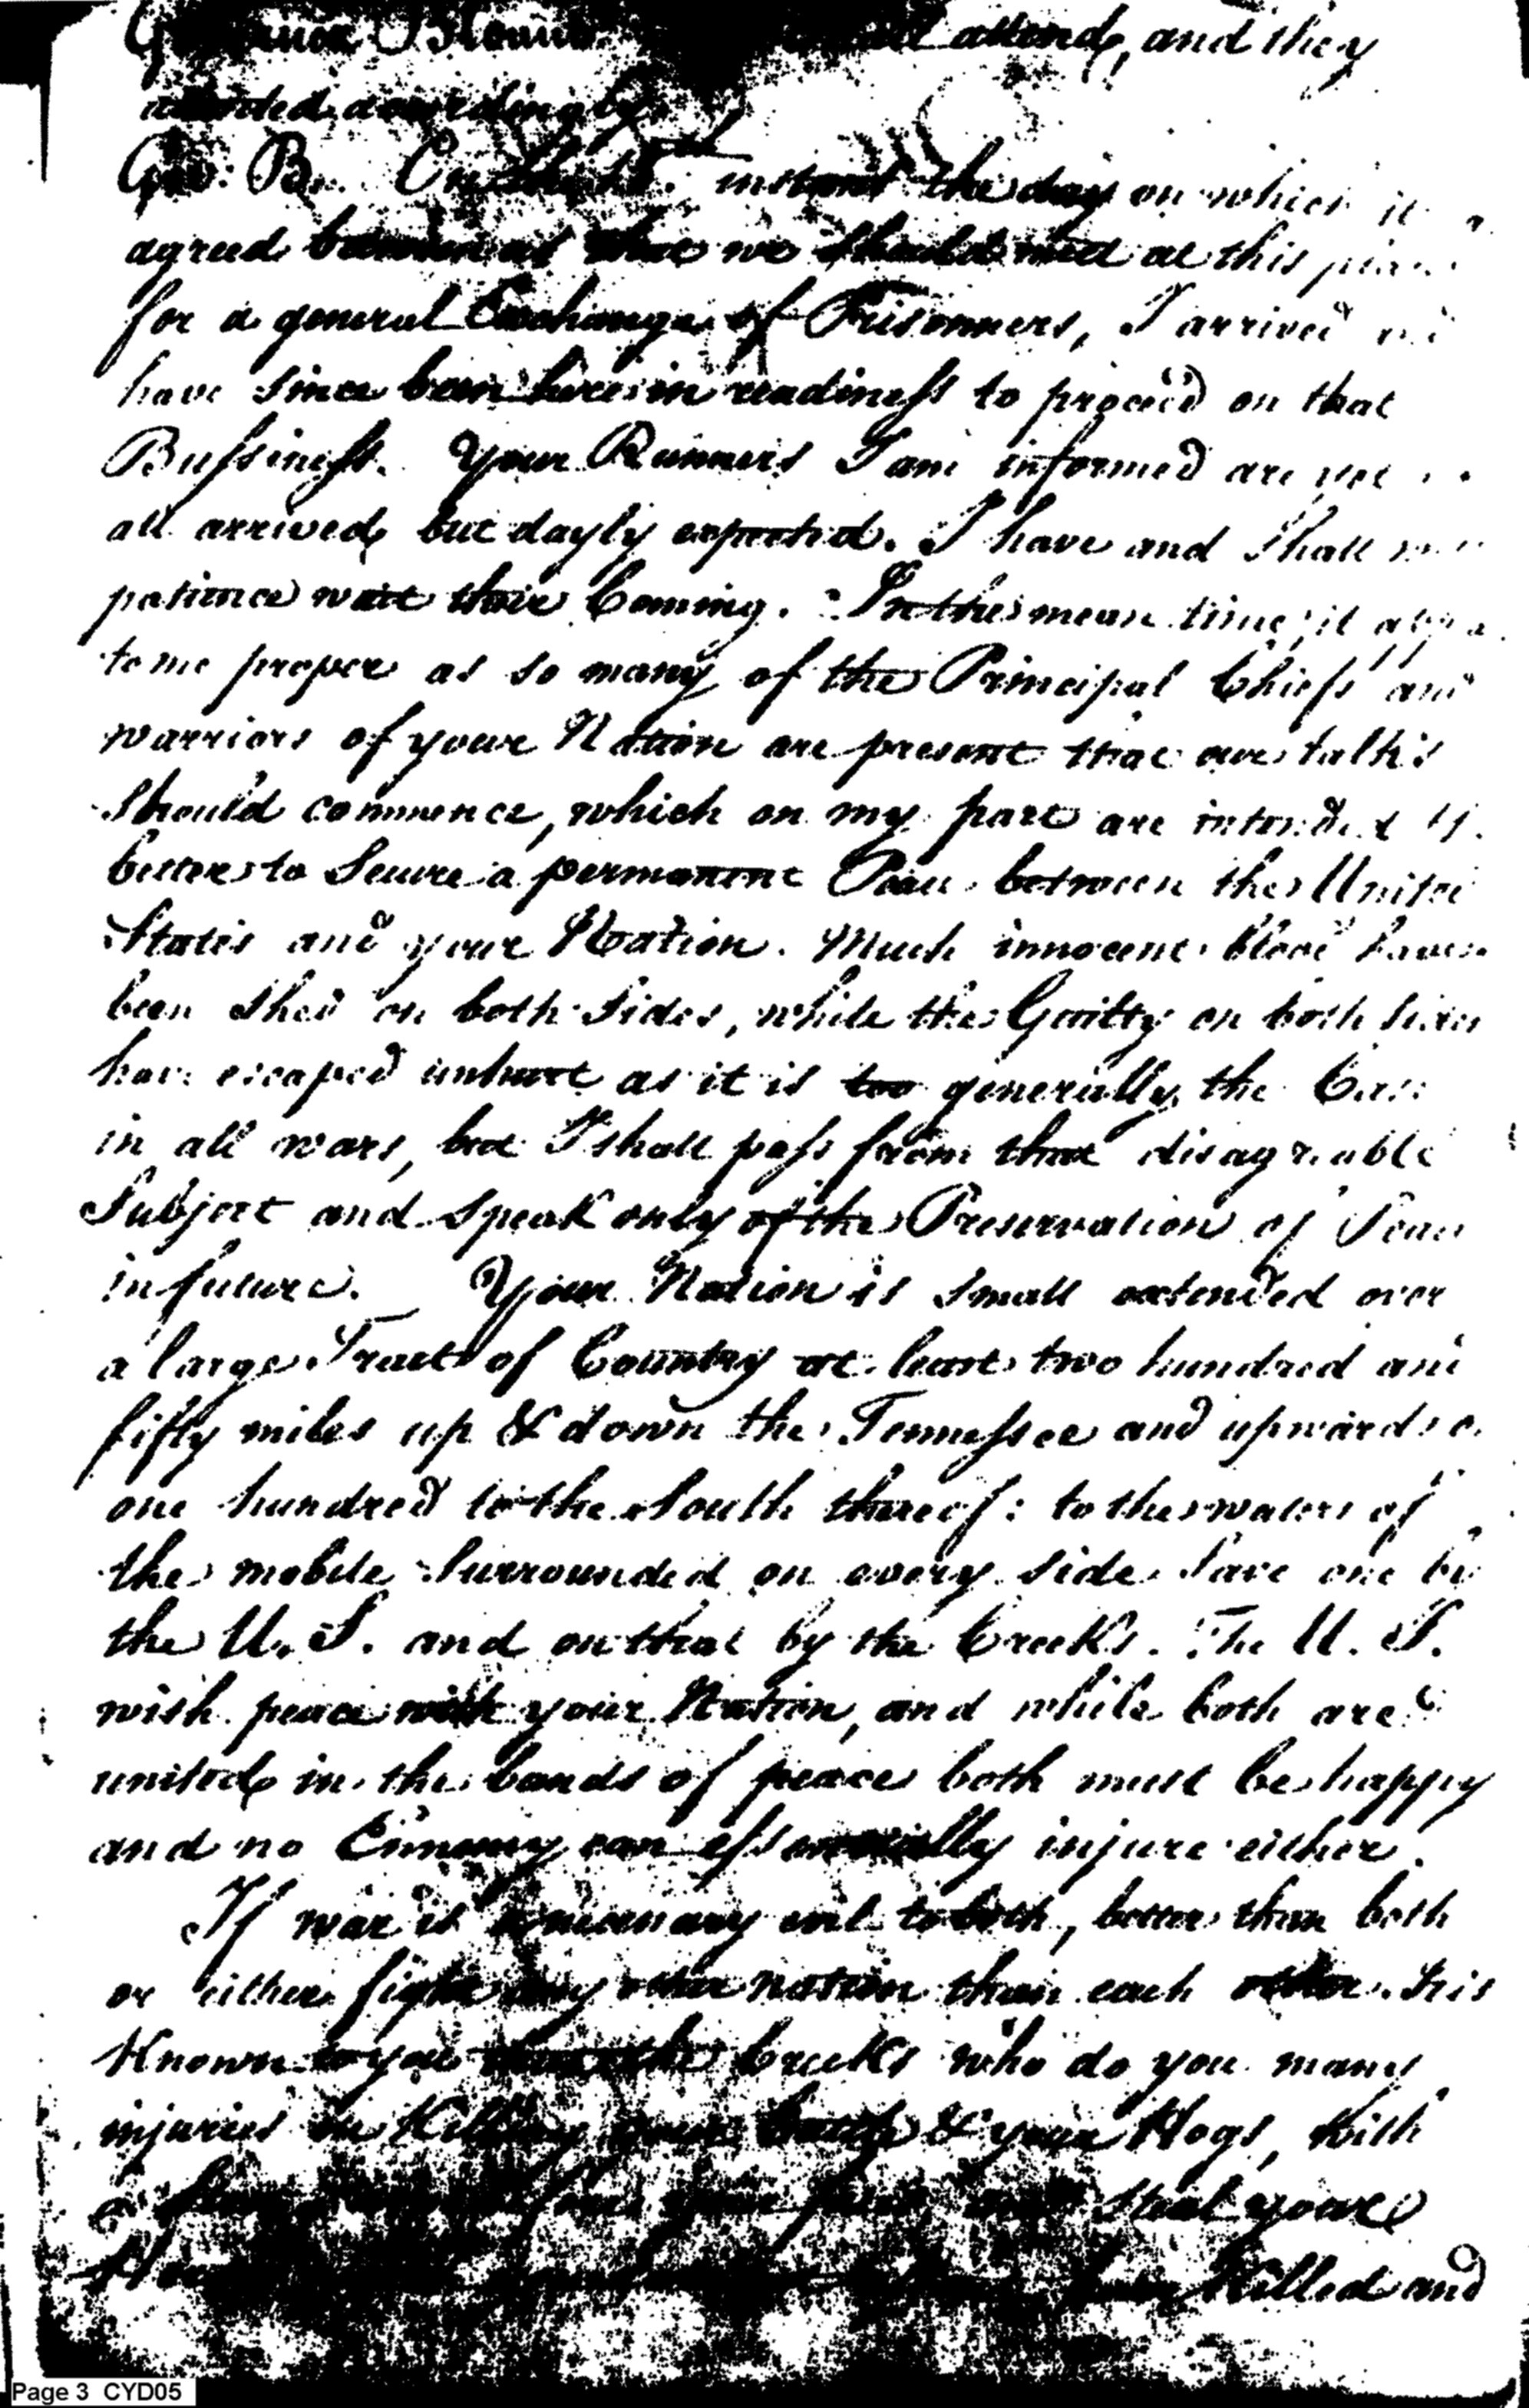 attend, and they
accordingly.
Gov: B. On the instant the day on which it
agreed between us that we should meet at this
for a general Exchange of Prisonners, I arrived
have since been here in readiness to proceed on that
Bussiness. Your Runners I am informed are yet
all arrived but dayly expected. I have and shall
patience wait their Coming. In the mean time, it
to me proper as so many of the Principal Chiefs and
warriors of your Nation are present that our talks
should commence, which on my part are intended
better to Secure a permanent Peace between the United
States and your Nation. Much innocent blood have
been shed on both Sides, while the Guilty on both sides
have escaped unhurt as it is too generally the Case
in all wars, but I shall pass from that disagreable
Subject and speak only of the Preservation of Peace
in future. Your Nation is small extended over
a large Tract of Country at least two hundred and
fifty miles up & down the Tennessee and upwards
one hundred to the South thereof: to the waters of
the mobile Surrounded on every side save one by
the U. S. and on that by the Creeks. The U. S.
wish peace with your Nation, and while both are
united in the bands of peace both must be happy
and no Ennemy can essentially injure either.
If war is a necessary evil to both, better than both
or either fight any other nation than each other. It is
Known to you that the Creeks who do you many
injuries in Killing your & your Hogs,
steal your
Killed and
Page 3 CYD05